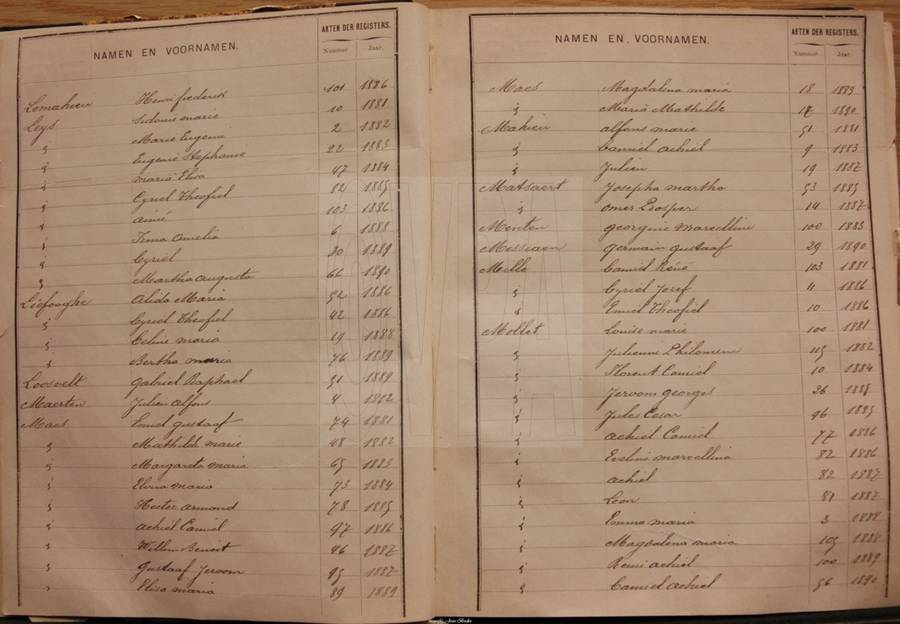 NAMEN EN VOORNAMEN. AKTEN DER REGISTERS.
Nummer Jaar.
Lemahieu Henri frederik 101 1886
Leys Sidonie marie 10 1881
" Marie Eugeni 2 1882
" Eugenie Stephanie 22 1883
" maria Eliza 47 1884
" Cyriel Theofiel 82 1885
" aimé 103 1886
" Irma Amelia 6 1888
" Cyriel 20 1889
" Martha Augusta 66 1890
Liefooghe Alida Maria 52 1886
" Cyriel Theofiel 42 1886
" Celine maria 19 1888
" Bertha maria 76 1889
Loosvelt Gabriel Raphael 51 1889
Maerten Julien Alfons 4 1882
Maes Emiel Gustaaf 74 1881
" Mathilde marie 48 1882
" Margareta maria 65 1883
" Elvira maria 73 1884
" Hector armand 78 1885
" achiel Camiel 97 1886
" Willem Benoit 46 1887
" Gustaaf Jeroom 95 1887
" Elisa maria 89 1889
NAMEN EN VOORNAMEN. AKTEN DER REGISTERS.
Nummer Jaar.
Maes Magdalena maria 18 1889
" Maria Mathilde 17 1890
Mahieu alfons marie 51 1881
" Camiel achiel 9 1883
" Julien 19 1887
Matsaert Josepha martha 53 1885
" omer Prosper 14 1887
Menten georgine marcelline 100 1883
Messiaen germain gustaaf 29 1890
Mille Camiel René 103 1881
" Cyriel Josef 11 1886
" Emiel Theofiel 10 1886
Mollet Louise marie 100 1881
" Julienne Philomene 115 1882
" Florent Camiel 10 1884
" Jeroom georges 26 1885
" Jules Cesar 96 1885
" achiel Camiel 77 1886
" Evelina marcellina 82 1886
" achiel 82 1887
" Leon 81 1887
" Emma maria 3 1888
" Magdalena maria 105 1888
" Remi achiel 100 1889
" Camiel achiel 56 1890